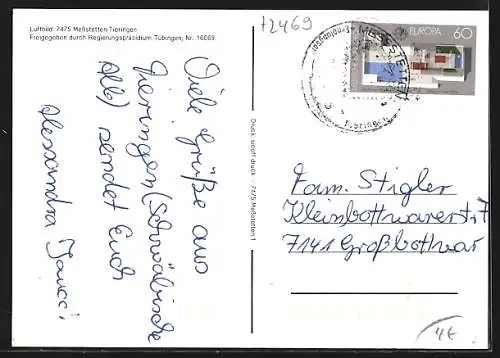 Luftbild: 7475 Meßstetten-Tieringen
Freigegeben durch Regierungspräsidium Tübingen, Nr. 16069
72469
EUROPA 60
MESSSTETTEN
Tieringen
Viele Grüße aus
Tieringen (Schwäbische
Alb) sendet Euch
Alexandra
Druck: · 7475 Meßstetten 1
Fam. Stigler
Kleinbottwarerst. 7
7141 Großbottwar
4€